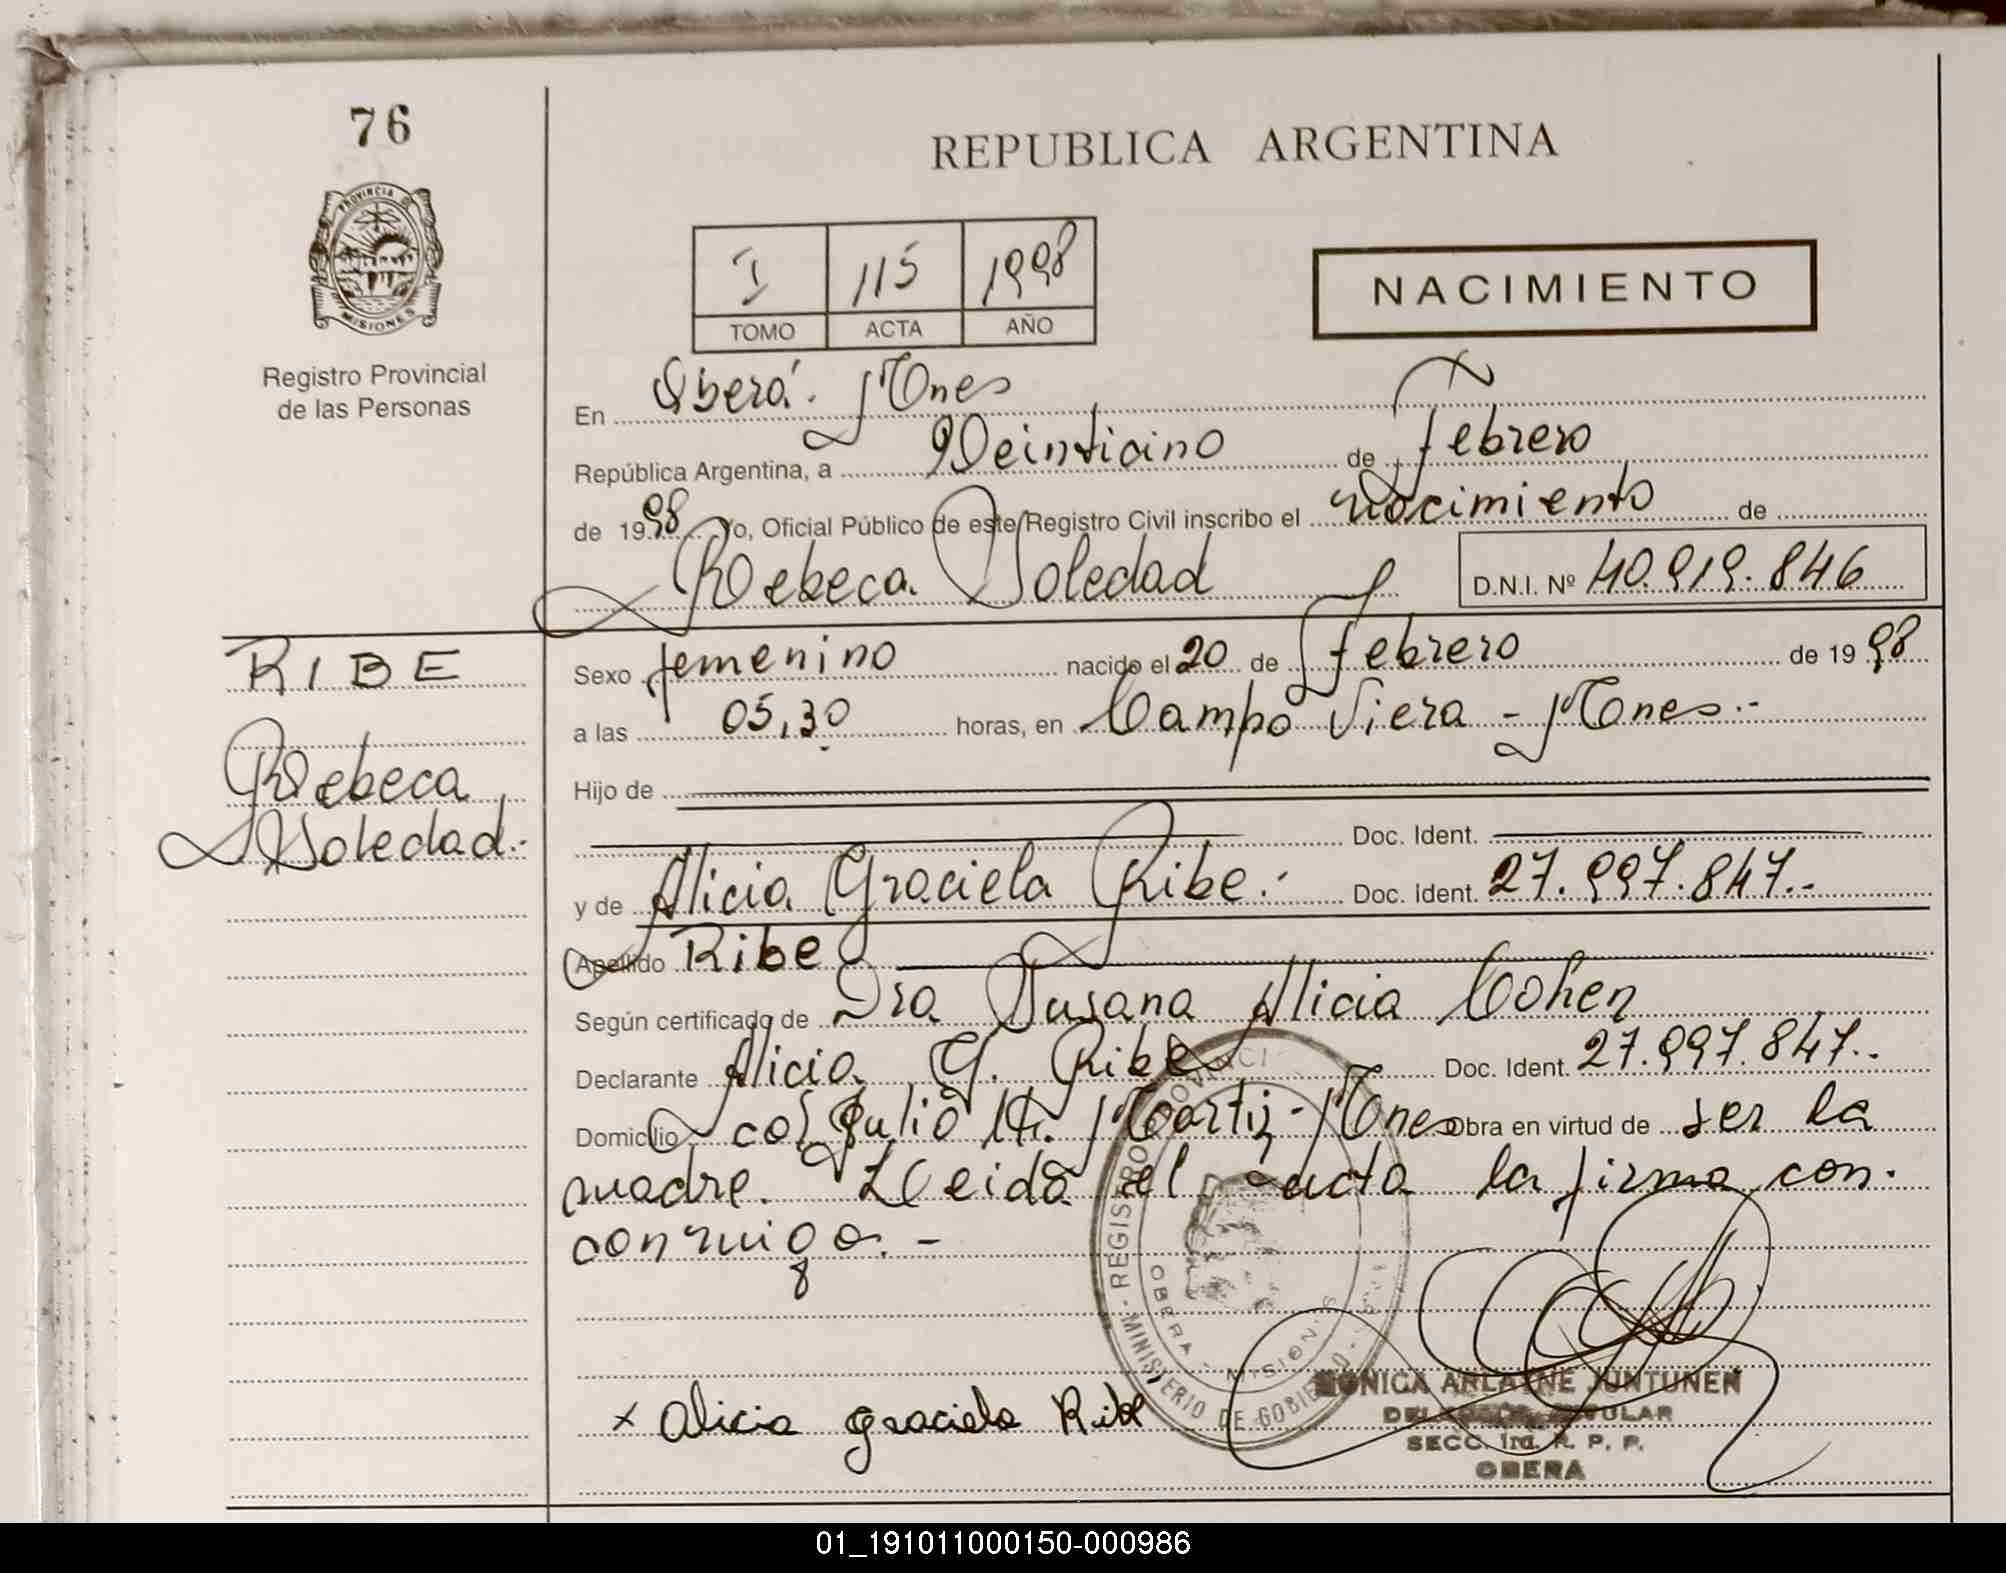 76
REPUBLICA ARGENTINA
PROVINCIA DE
MISIONES
Registro Provincial
de las Personas
I 115 1998
TOMO ACTA AÑO
NACIMIENTO
En Oberá. Mnes
República Argentina, a Veinticino de Febrero
de 1998 Yo, Oficial Público de este Registro Civil inscribo el nacimiento de
Rebeca Soledad D.N.I. Nº 40.919.846
RIBE
Rebeca
Soledad.-
Sexo femenino nacido el 20 de Febrero de 1998
a las 05,30 horas, en Campo Viera - Mnes.-
Hijo de
Doc. Ident.
y de Alicia Graciela Ribe.- Doc. Ident. 27.997.847.-
Apellido Ribe
Según certificado de Dra Susana Alicia Cohen
Declarante Alicia G. Ribe Doc. Ident. 27.997.847.-
Domicilio col Julio U. Martiz - Mnes Obra en virtud de ser la
madre. Leida el acta la firma con.
conmigo.-
REGISTRO PROVINCI
MINISTERIO DE GOBIERNO
OBERA - MISIONES
x Alicia Graciela Ribe
MONICA ARLAINE JUNTUNEN
DELEGADA TITULAR
SECC. 1ra. R. P. P.
OBERA
01_191011000150-000986